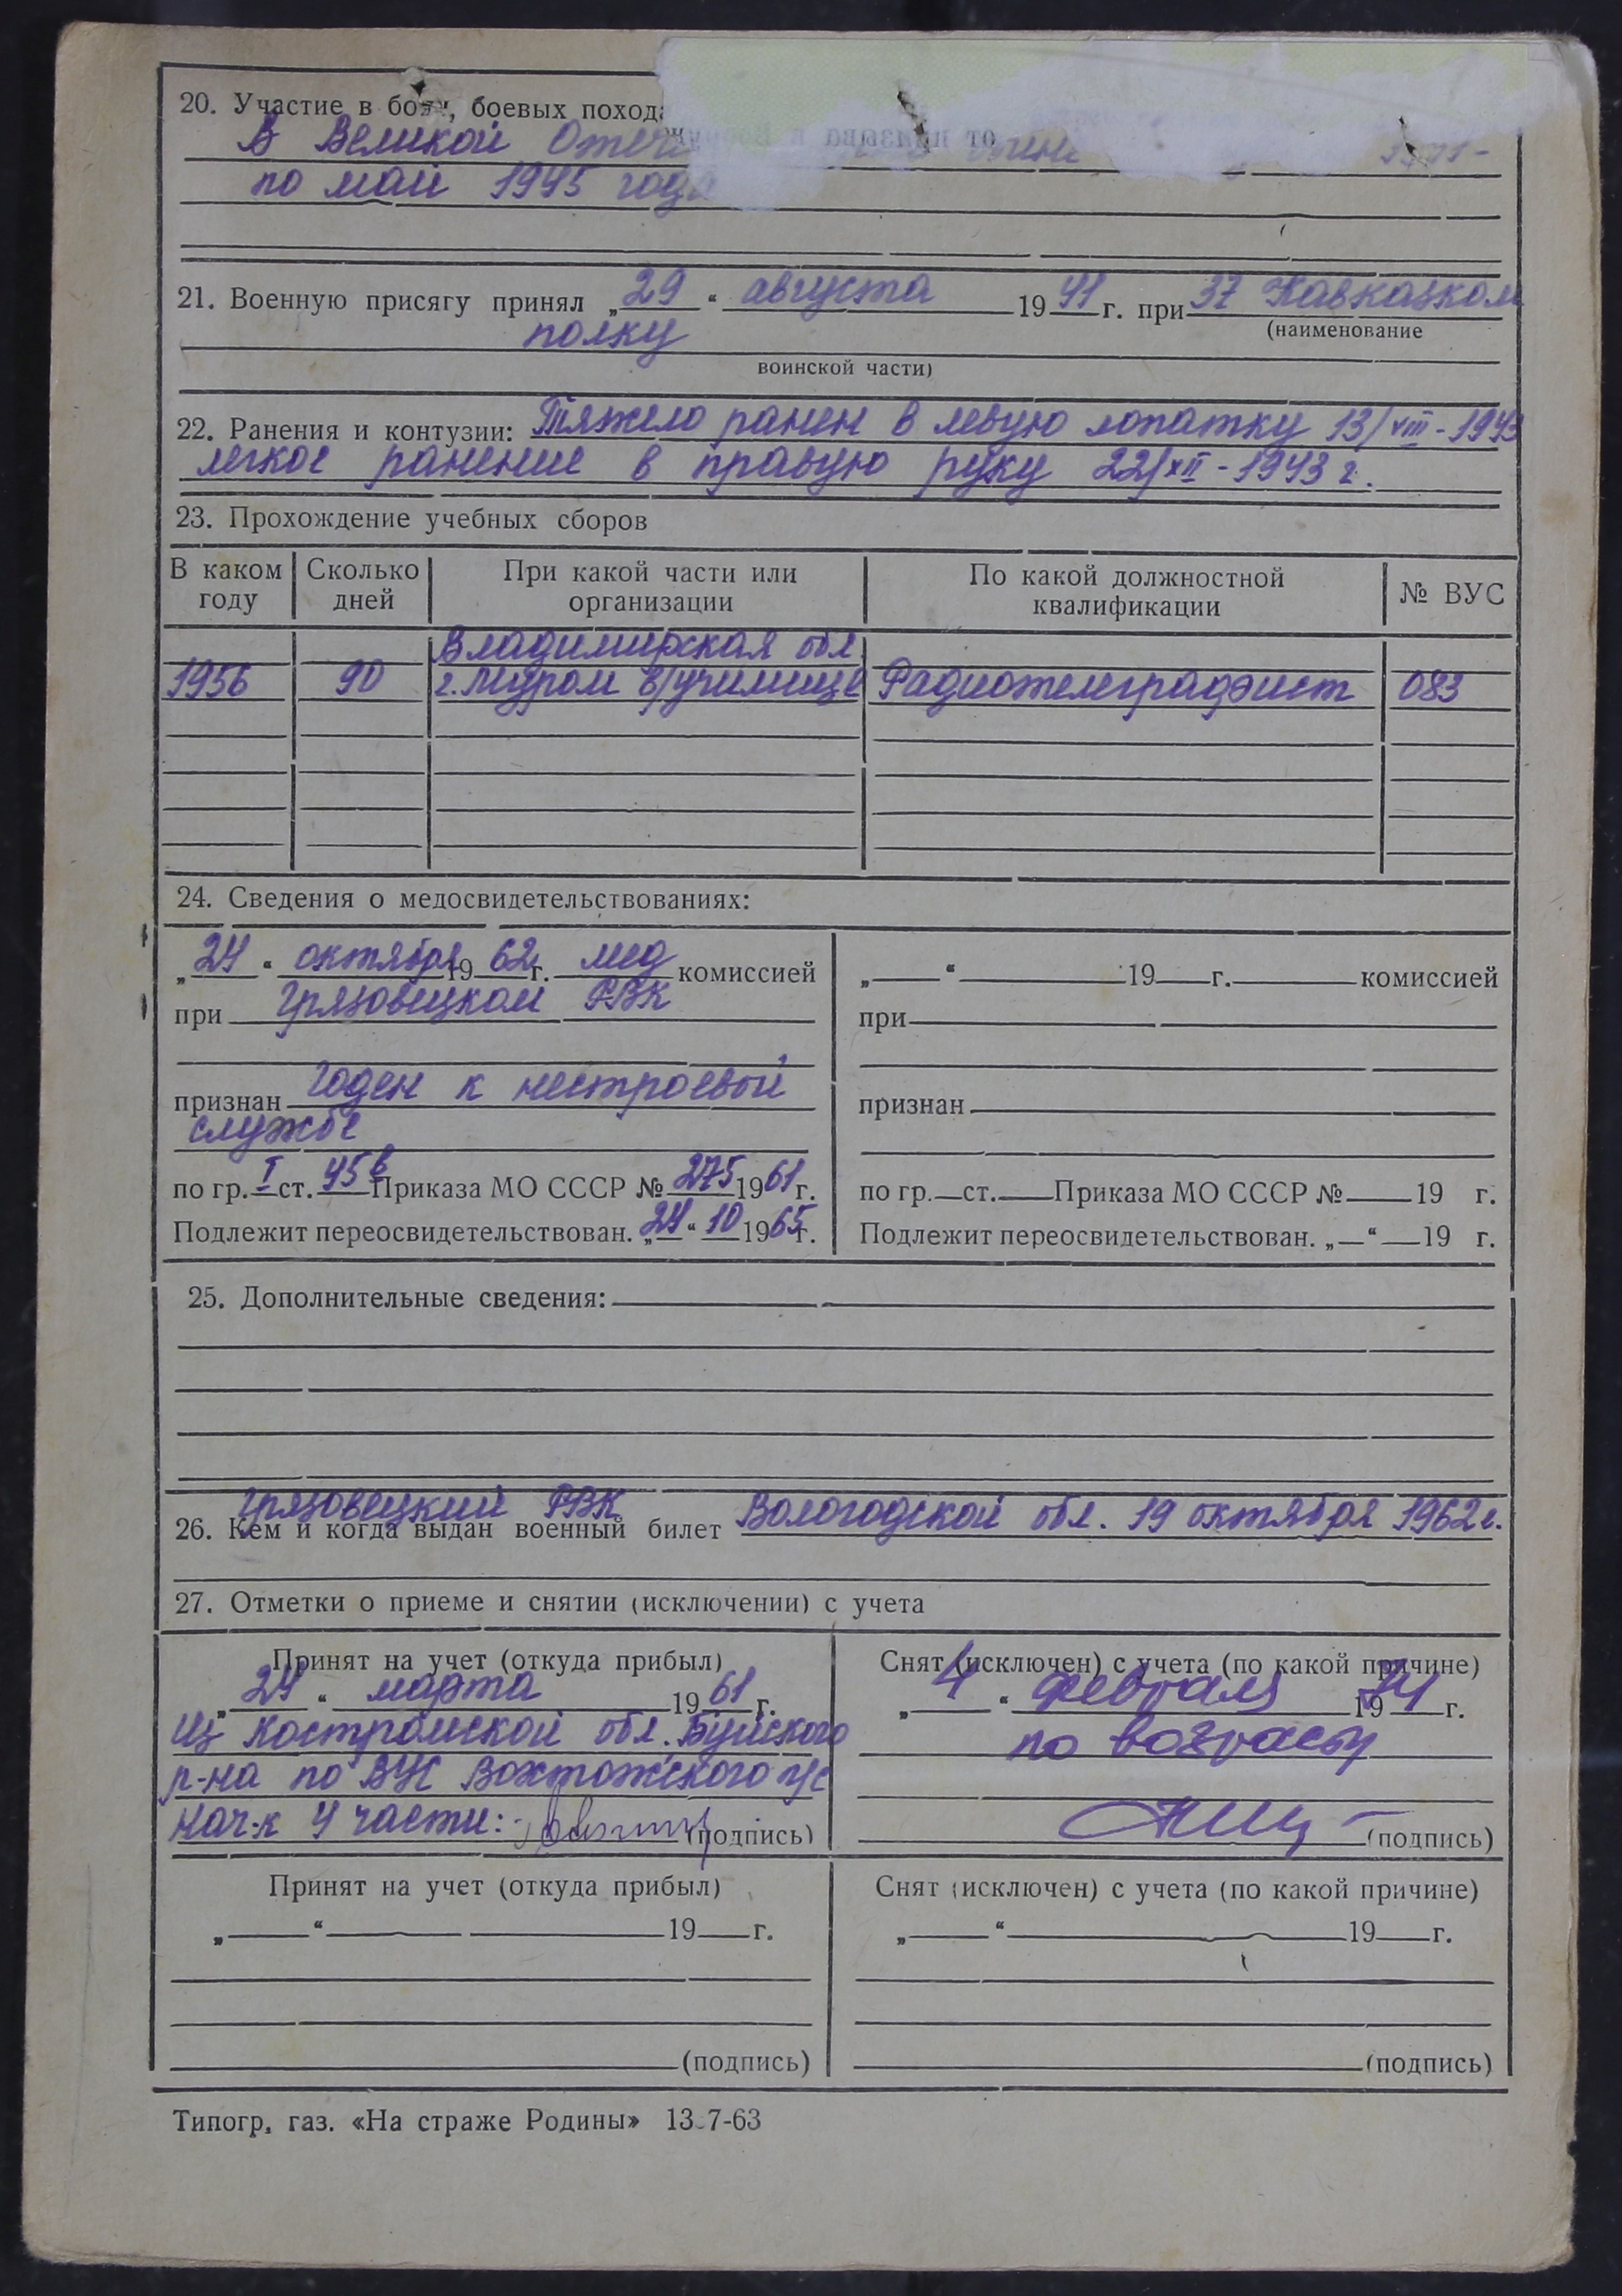 20. Участие в боях, боевых похода
В Великой Отече
от призыва в Воору
по май 1945 года
21. Военную присягу принял „29“ августа 1941 г. при 37 Кавказком
(наименование
полку
воинской части)
22. Ранения и контузии: Тяжело ранен в левую лопатку 13/VIII-1943
легкое ранение в правую руку 22/XII-1943 г.
23. Прохождение учебных сборов
В каком году Сколько дней При какой части или организации По какой должностной квалификации № ВУС
Владимирская обл.
1956 90 г. Муром в/училище Радиотелеграфист 083
24. Сведения о медосвидетельствованиях:
„24“ октября 1962 г. мед комиссией
при Грязовецком РВК
признан годен к нестроевой
службе
по гр. I ст. 45в Приказа МО СССР № 275 1961 г.
Подлежит переосвидетельствован. „24“ 10 1965 г.
„ “ 19 г. комиссией
при
признан
по гр. ст. Приказа МО СССР № 19 г.
Подлежит переосвидетельствован. „ “ 19 г.
25. Дополнительные сведения:
Грязовецкий РВК
26. Кем и когда выдан военный билет Вологодской обл. 19 октября 1962 г.
27. Отметки о приеме и снятии (исключении) с учета
Принят на учет (откуда прибыл)
„24“ марта 1961 г.
Из Костромской обл. Буйского
р-на по ВУС Вохтожского п/с
Нач-к 4 части: (подпись)
Снят (исключен) с учета (по какой причине)
„4“ февраля 1974 г.
по возрасту
(подпись)
Принят на учет (откуда прибыл)
„ “ 19 г.
(подпись)
Снят (исключен) с учета (по какой причине)
„ “ 19 г.
(подпись)
Типогр. газ. «На страже Родины» 13-7-63